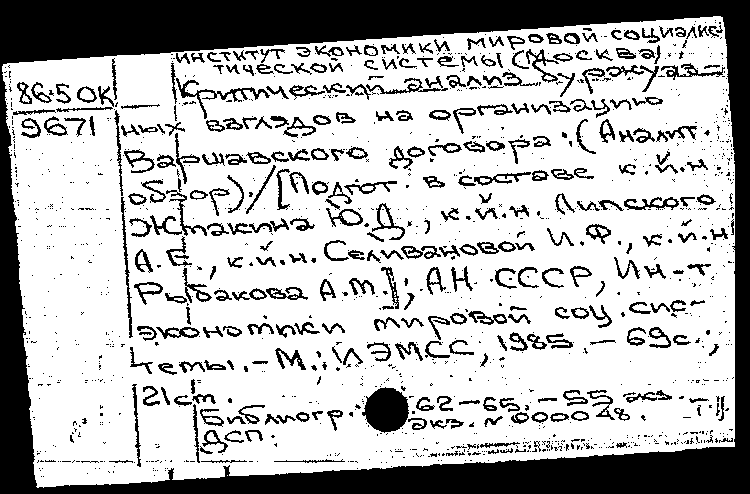 институт экономики мировой социалис-
тической системы (Москва)
86-5 ОК Критический анализ буржуаз-
9671 ных взглядов на организацию
Варшавского договора: (Аналит.
обзор). / [Подгот. в составе к.й.н.
Жмакина Ю.Д., к.й.н. Липского
А.Е., к.й.н. Селивановой И.Ф., к.й.н
Рыбакова А.М.]; АН СССР, Ин-т
экономики мировой соц. сис-
темы. - М.: ИЭМСС, 1985. - 69с.;
21 см.
Библиогр.: 62-65. - 55 экз.
ДСП. экз. N 000048.